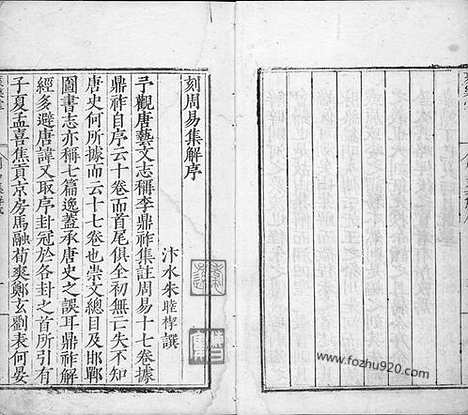 刻周易集解序
汴水朱睦㮮撰
予觀唐藝文志稱李鼎祚集註周易十七卷據
鼎祚自序云十卷而首尾俱全初無亡失不知
唐史何所據而云十七卷也崇文總目及邯鄲
圖書志亦稱七篇逸蓋承唐史之誤耳鼎祚解
經多避唐諱又取序卦冠於各卦之首所引有
子夏孟喜焦貢京房馬融荀爽鄭玄劉表何晏
www.fozhu920.com